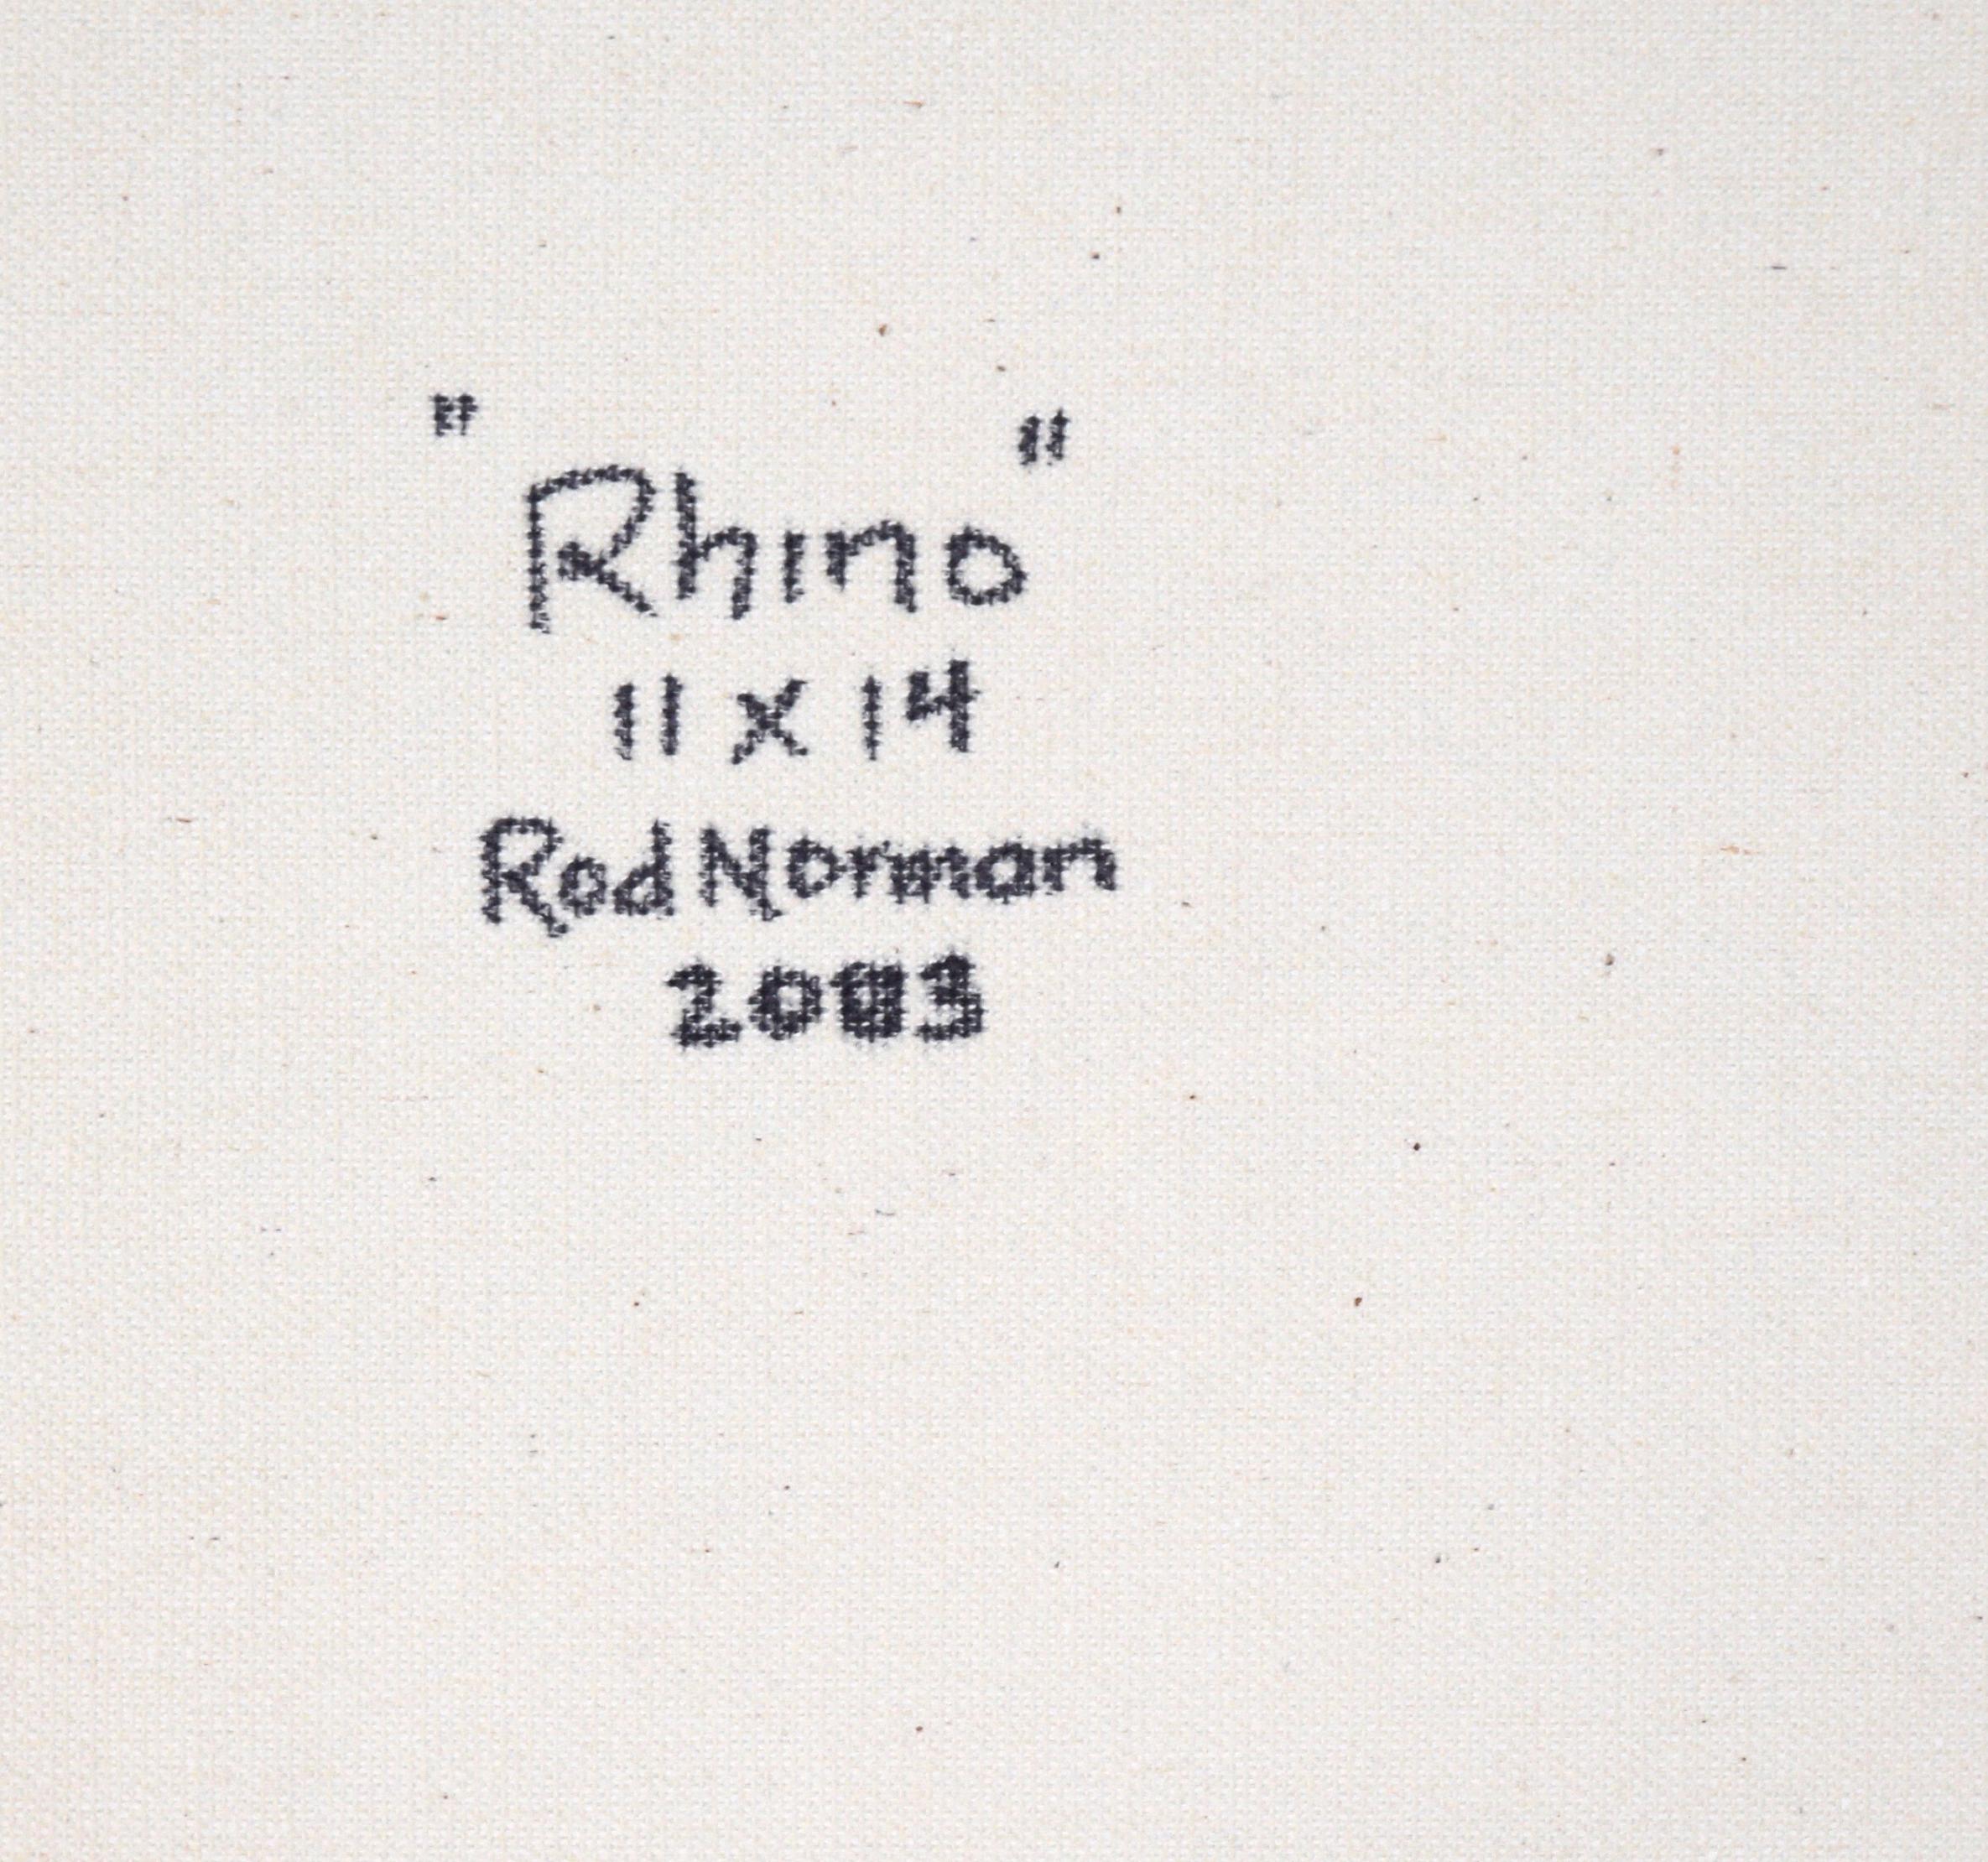 "Rhino"
11 x 14
Rod Norman